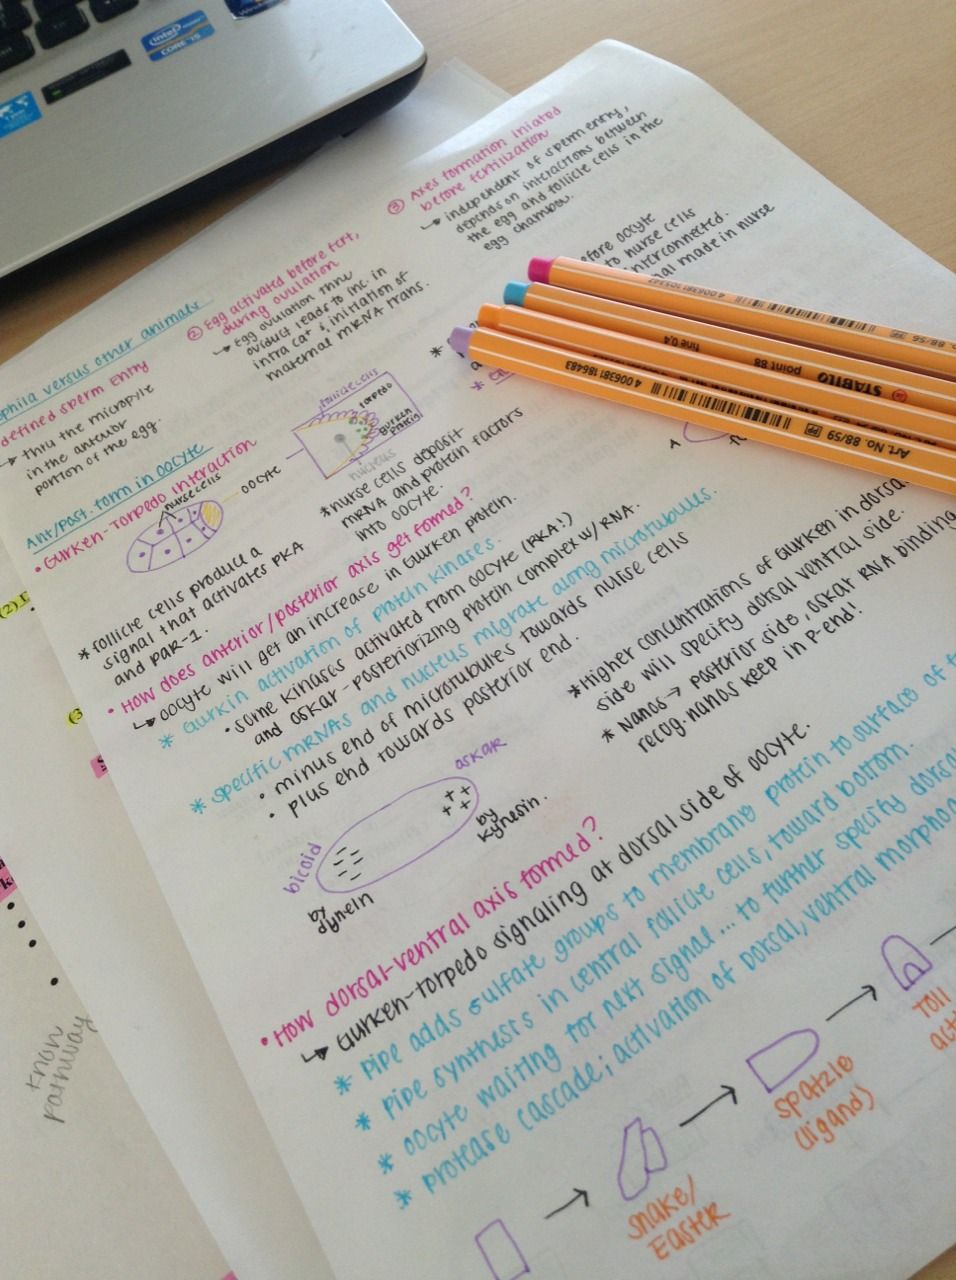 intel
CORE i5
③ Axes formation iniated
before fertilization
↳ independent of sperm entry,
depends on interactions between
the egg and follicle cells in the
egg chambor.
② Egg activated before fert,
during ovulation
↳ Egg ovulation thru
oviduct leads to inc. in
intra ca+ & initiation of
maternal mRNA trans.
ophila versus other animals
defined sperm entry
↳ thru the micropyle
in the anterior
portion of the egg.
efore oocyte
to nurse cells
interconnected.
made in nurse
Ant/Post. form in oocyte
• Gurken-Torpedo interaction
nurse cells
oocyte
follicle cells
torpedo
gurken
protein
nucleus
*nurse cells deposit
mRNA and protein factors
into oocyte.
A
* follicle cells produce a
signal that activates PKA
and PAR-1.
• How does anterior/posterior axis get formed?
↳ oocyte will get an increase in Gurken protein.
* Gurkin activation of protein kinases.
• some kinases activated from oocyte (PKA!)
and oskar-posteriorizing protein complex w/ RNA.
* specific mRNAs and nucleus migrate along microtubules.
• minus end of microtubules towards nurse cells
• plus end towards posterior end.
oskar
+ + + + +
by
kynesin.
bicoid
by
dynein
*Higher concentrations of Gurken in dorsal
side will specify dorsal ventral side.
* Nanos → posterior side, oskar RNA binding
recog. nanos keep in P-end!
• How dorsal-ventral axis formed?
↳ Gurken-torpedo signaling at dorsal side of oocyte.
* pipe adds sulfate groups to membrane protein to surface of
* pipe synthesis in central follicle cells, toward bottom.
* oocyte waiting for next signal... to further specify dorsa
* protease cascade; activation of dorsal, ventral morpho
snake/
Easter
spatzle
(ligand)
Toll
acti
know
pathway
(2)
(3
4 006381 105347
o. 88/56
fine 0,4
point 88
STABILO
4 006381 186483
Art. No. 88/59